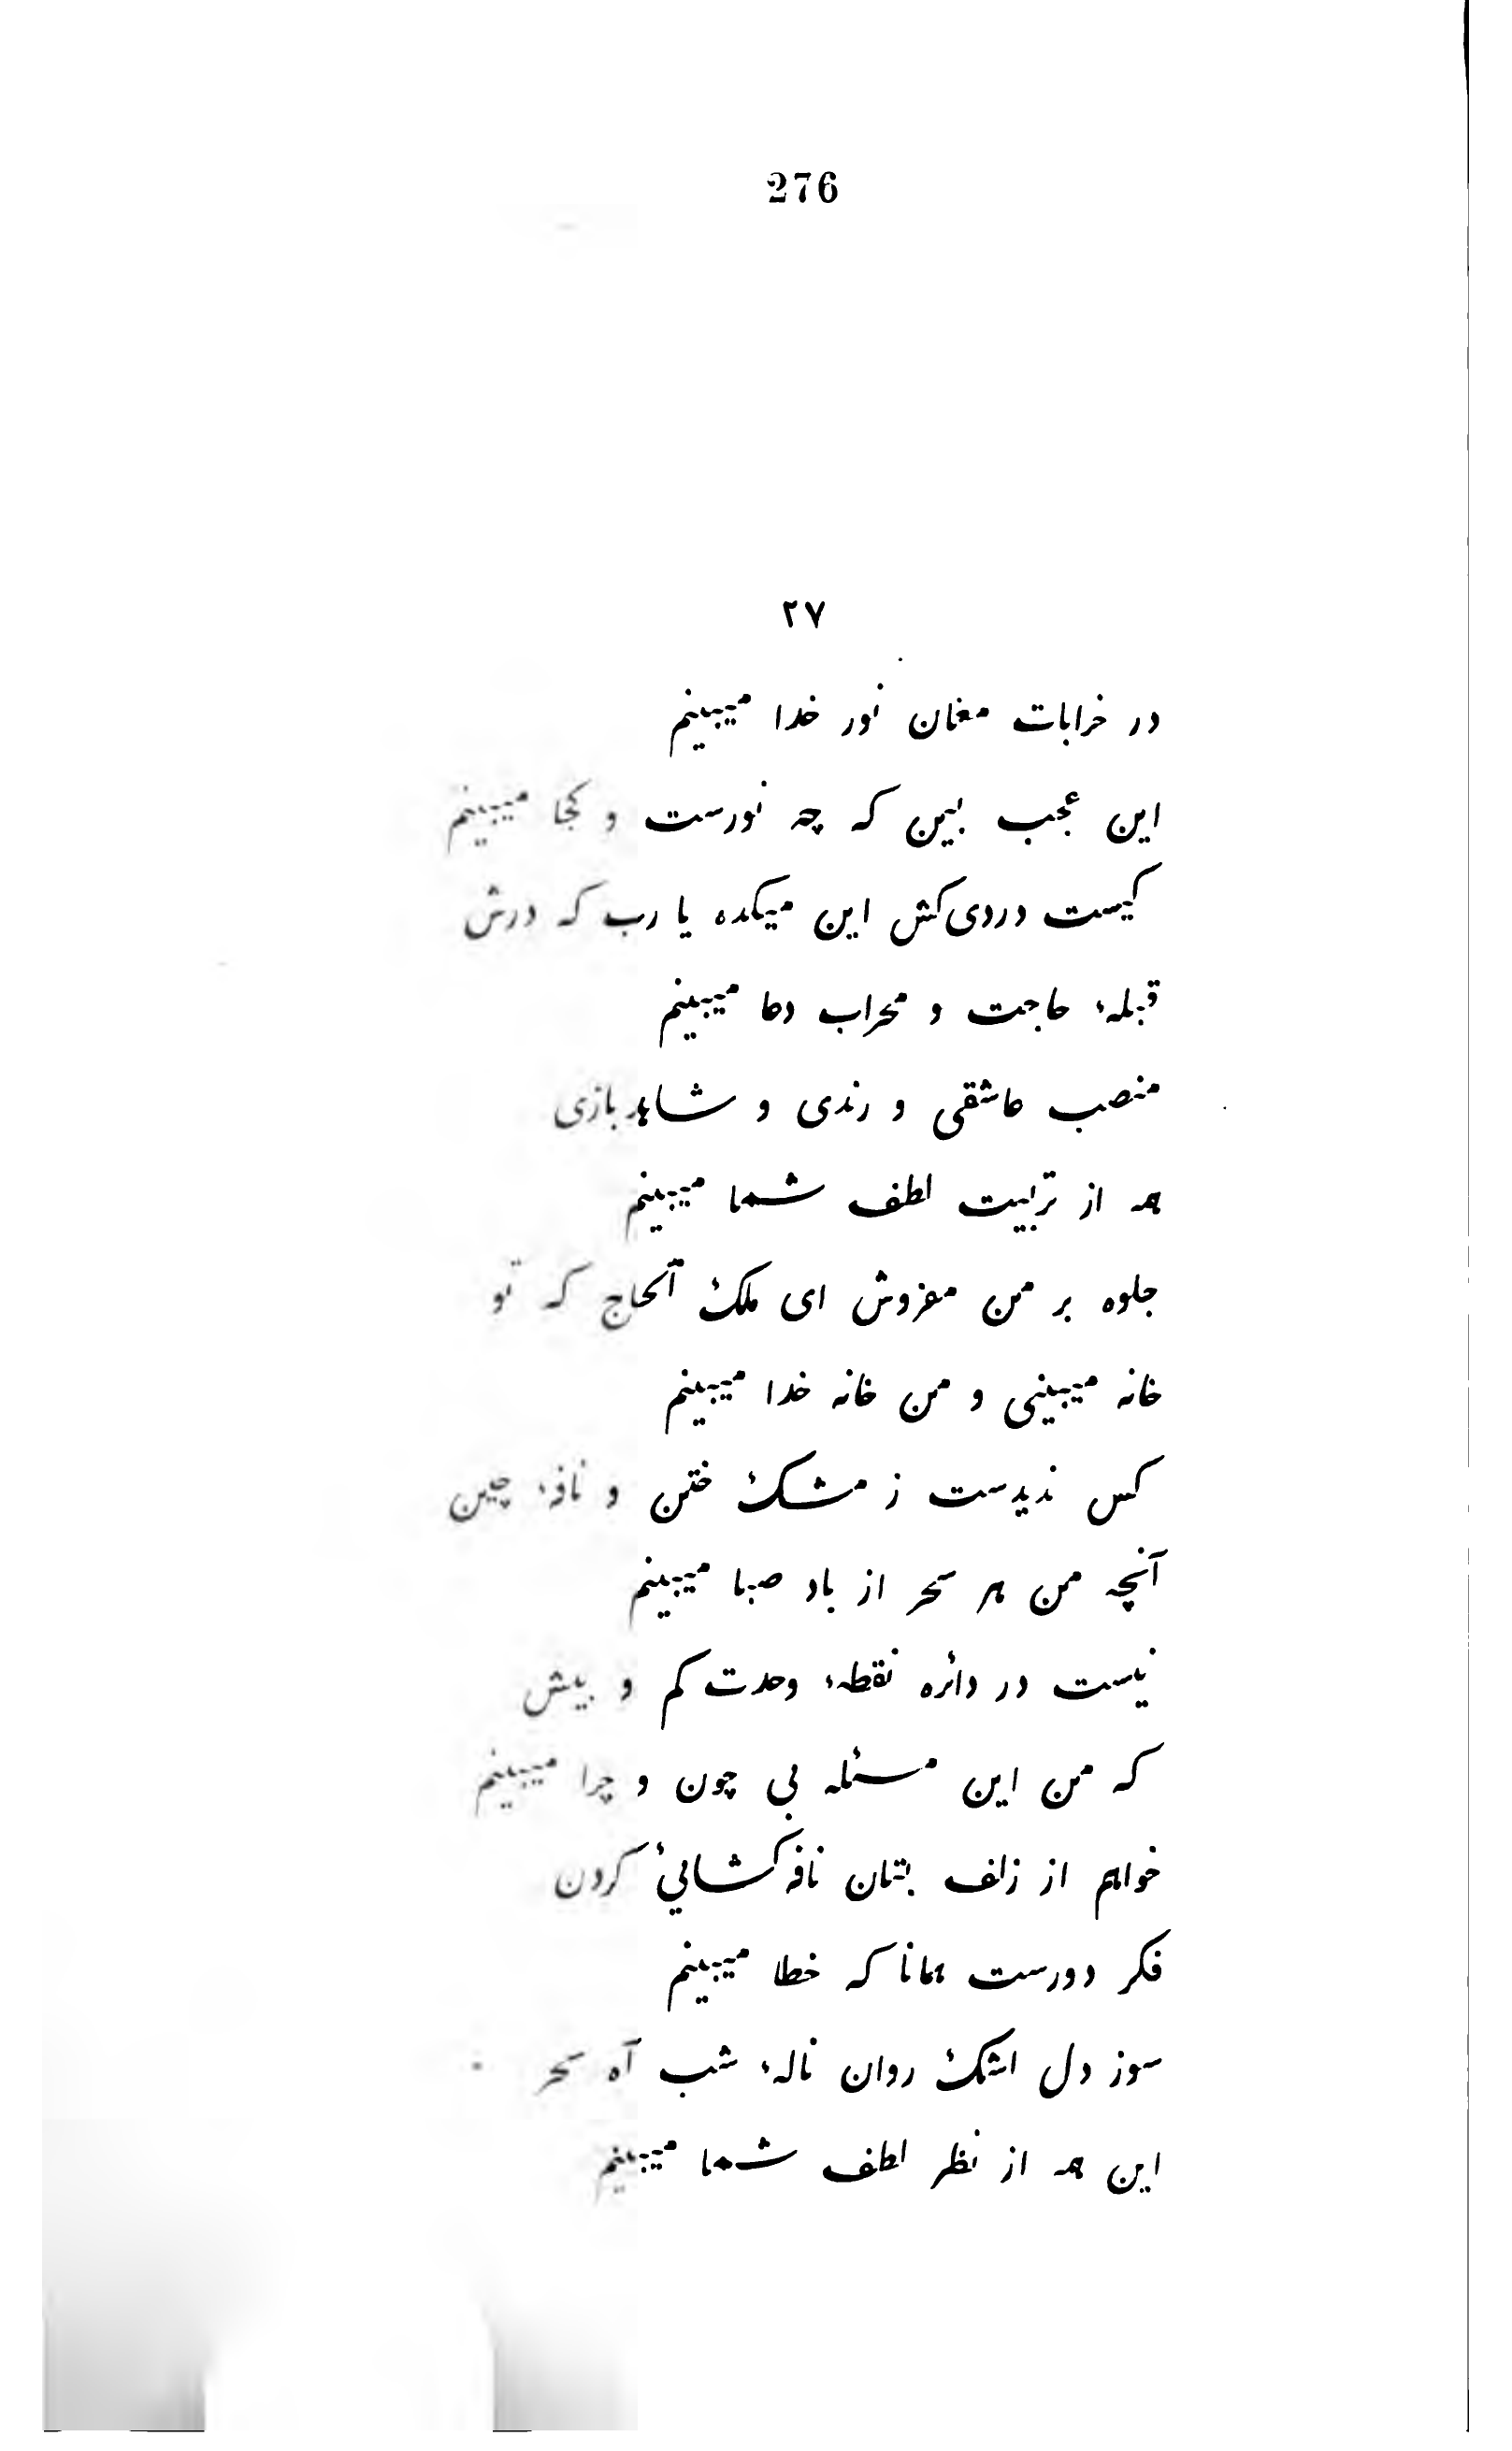 276
۲۷
در خرابات مغان نور خدا میبینم
این عجب بین که چه نورست و کجا میبینم
کیست دردی‌کش این میکده یا رب که درش
قبلهٔ حاجت و محراب دعا میبینم
منصب عاشقی و رندی و شاهدبازی
همه از تربیت لطف شما میبینم
جلوه بر من مفروش ای ملک آلحاج که تو
خانه میبینی و من خانه خدا میبینم
کس ندیدست ز مشک ختن و نافهٔ چین
آنچه من هر سحر از باد صبا میبینم
نیست در دائره نقطهٔ وحدت کم و بیش
که من این مسئله بی چون و چرا میبینم
خواهم از زلف بتان نافه‌کشائی کردن
فکر دورست همانا که خطا میبینم
سوز دل اشک روان نالهٔ شب آه سحر
این همه از نظر لطف شما میبینم